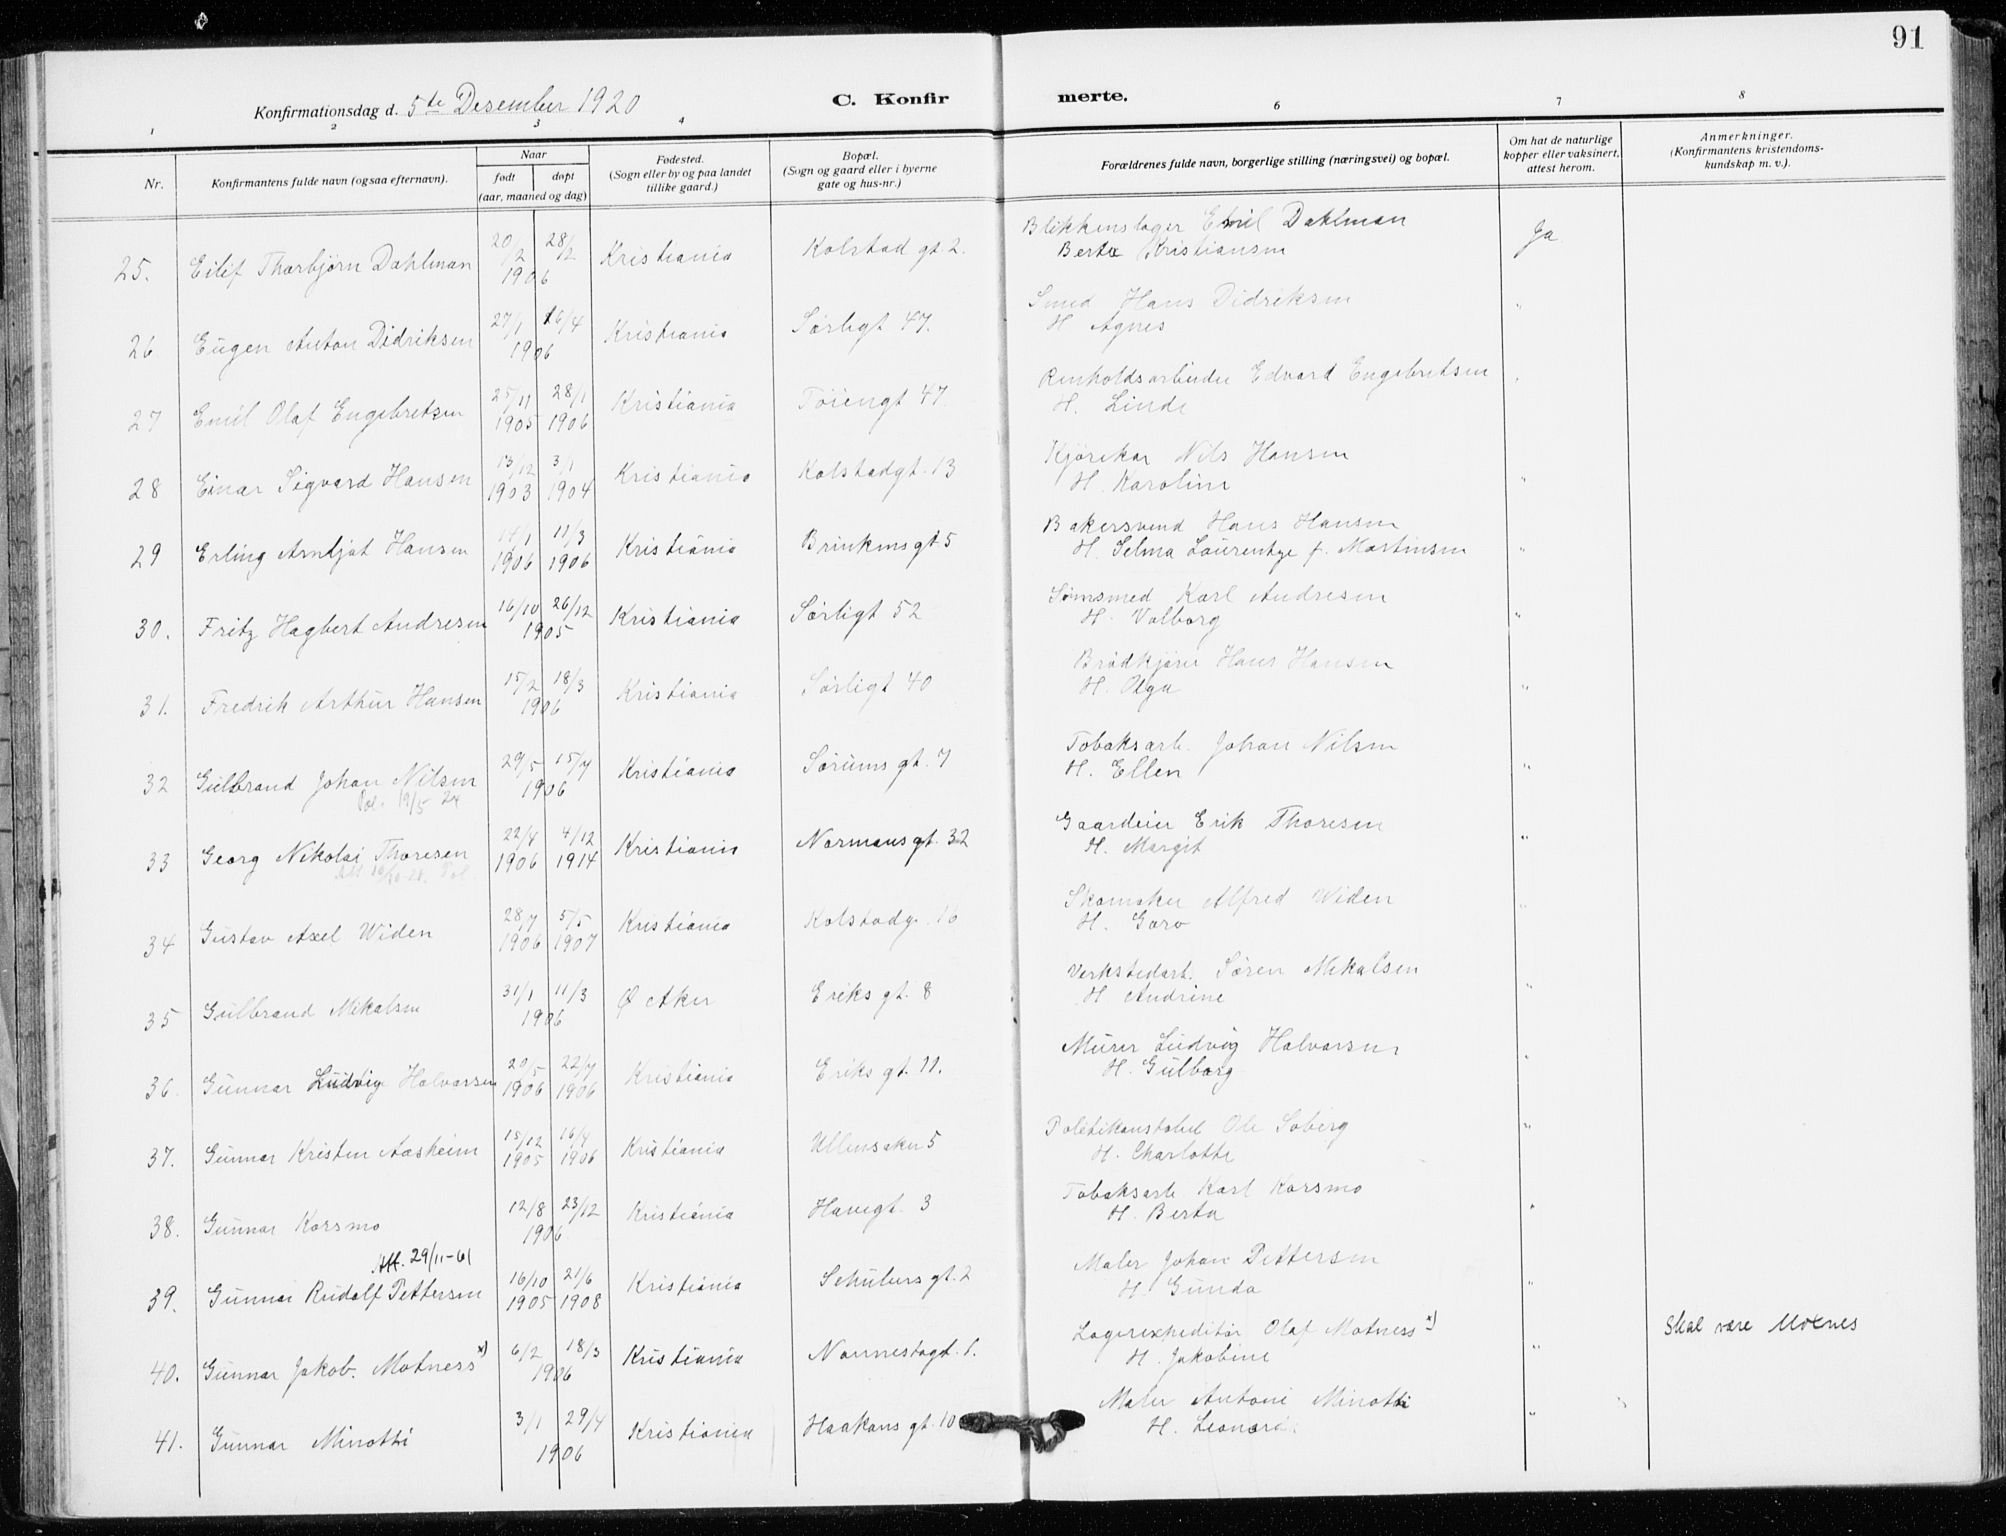 91
Konfirmationsdag d. 5te Desember 1920
C. Konfirmerte.
1 2 3 4 6 7 8
Nr. Konfirmantens fulde navn (ogsaa efternavn). Naar født døpt (aar, maaned og dag) Fødested. (Sogn eller by og paa landet tillike gaard.) Bopæl. (Sogn og gaard eller i byerne gate og hus-nr.) Forældrenes fulde navn, borgerlige stilling (næringsvei) og bopæl. Om hat de naturlige kopper eller vaksinert, attest herom. Anmerkninger. (Konfirmantens kristendoms-kundskap m. v.).
25. Eilif Thorbjørn Dahlman 20/2 28/2 1906 Kristiania Kolstad gt 2. Blikkenslager Emil Dahlman Ja
Berta Kristiansen
26 Eugen Anton Didriksen 27/1 16/4 1906 Kristiania Sørligt 47. Smed Hans Didriksen "
H. Agnes
27 Emil Olaf Engebretsen 25/11 1905 28/1 1906 Kristiania Tøiengt 47 Renholdsarbeider Edvard Engebretsen "
H. Linde
28 Einar Sigvard Hansen 13/12 1903 3/1 1904 Kristiania Kolstadgt. 13 Kjørekar Nils Hansen "
H. Karoline
29 Erling Arnljot Hansen 14/1 1906 11/3 1906 Kristiania Brinkens gt. 5 Bakersvend Hans Hansen "
H. Selma Laurentze f. Martinsen
30. Fritz Hagbert Andresen 16/10 26/12 1905 Kristiania Sørligt 52 Sømsmed Karl Andresen "
H. Valborg
31. Fredrik Arthur Hansen 15/2 18/3 1906 Kristiania Sørligt 40 Brødkjører Hans Hansen "
H. Olga
32 Gulbrand Johan Nilsen 29/5 15/7 1906 Kristiania Sørums gt. 7 Tobaksarb. Johan Nilsen "
Pol. 19/5 24 H. Ellen
33 Georg Nikolai Thoresen 22/4 1906 4/12 1914 Kristiania Normans gt. 32 Gaardeier Erik Thoresen "
H. Margit
34 Gustav Axel Widen 28/7 1906 5/5 1907 Kristiania Kolstadg. 16 Skomaker Alfred Widen "
H. Garo
35 Gulbrand Mikalsen 31/1 11/3 1906 Ø Aker Eriks gt. 8 Verkstedarb. Søren Mikalsen "
H. Andrine
36. Gunnar Ludvig Halvorsen 20/5 1906 22/7 1906 Kristiania Eriks gt. 11. Murer Ludvig Halvorsen "
H. Gulborg
37. Gunnar Kristen Aasheim 15/12 1905 16/4 1906 Kristiania Ullensaker 5 Politikonstabel Ole Soberg "
H. Charlotte
38. Gunnar Korsmo 12/8 23/12 1906 Kristiania Havegt. 3 Tobaksarb. Karl Korsmo "
H. Berta
Att. 29/11-61
39. Gunnar Rudolf Pettersen 16/10 1905 21/6 1908 Kristiania Schubers gt. 2 Maler Johan Pettersen "
H. Gunda
40. Gunnar Jakob. Motness x) 6/2 18/3 1906 Kristiania Nannestagt. 1. Lagerexpeditør Olaf Motness x) " Skal være Moenes
H. Jakobine
41. Gunnar Minotti 3/1 29/4 1906 Kristiania Haakons gt. 10 Maler Antoni Minotti "
H. Leonora